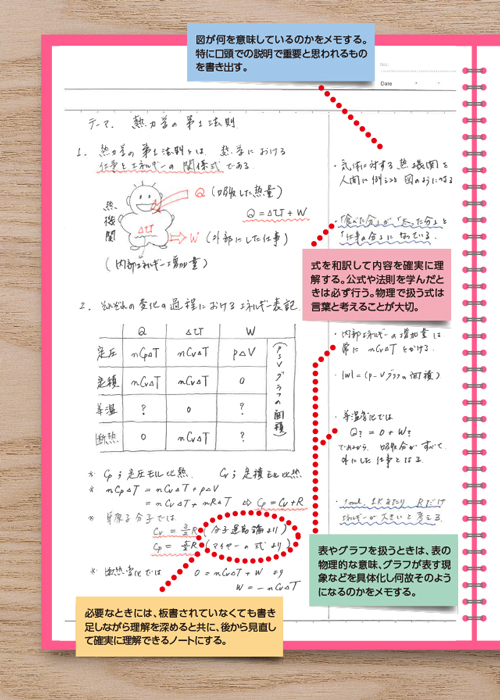 図が何を意味しているのかをメモする。
特に口頭での説明で重要と思われるもの
を書き出す。
No.
Date
テーマ. 熱力学の第1法則
1. 熱力学の第1法則とは、熱学における
仕事とエネルギーの関係式である。
熱機関
Q (吸収した熱量)
ΔU
Q = ΔU + W
W (外部にした仕事)
(内部エネルギー増加量)
・気体に対する熱機関を
人間に例えると図のようになる
「食べた分」が、「太った分」と
「仕事の分」になっている。
式を和訳して内容を確実に理
解する。公式や法則を学んだと
きは必ず行う。物理で扱う式は
言葉と考えることが大切。
2. それぞれの変化の過程におけるエネルギー表記
Q ΔU W
定圧 nCpΔT nCvΔT pΔV
定積 nCvΔT nCvΔT 0
等温 ? 0 ?
断熱 0 nCvΔT ?
(P-Vグラフの面積)
・内部エネルギーの増加量は
常に nCvΔT とかける。
・|W| = (P-Vグラフの面積)
・等温変化では
Q? = 0 + W?
であるから、吸収分がすべて、
外にした仕事となる
* Cp; 定圧モル比熱. Cv; 定積モル比熱
* nCpΔT = nCvΔT + pΔV
= nCvΔT + nRΔT ⇒ Cp = Cv + R
* 単原子分子では
Cv = 3/2 R (分子運動論より)
Cp = 5/2 R (マイヤーの式より)
* 断熱変化では 0 = nCvΔT + W より
W = -nCvΔT
・1mol, 1Kあたり Rだけ
エネルギーが大きいと考える.
表やグラフを扱うときは、表の
物理的な意味、グラフが表す現
象などを具体化し何故そのよう
になるのかをメモする。
必要なときには、板書されていなくても書き
足しながら理解を深めると共に、後から見直し
て確実に理解できるノートにする。